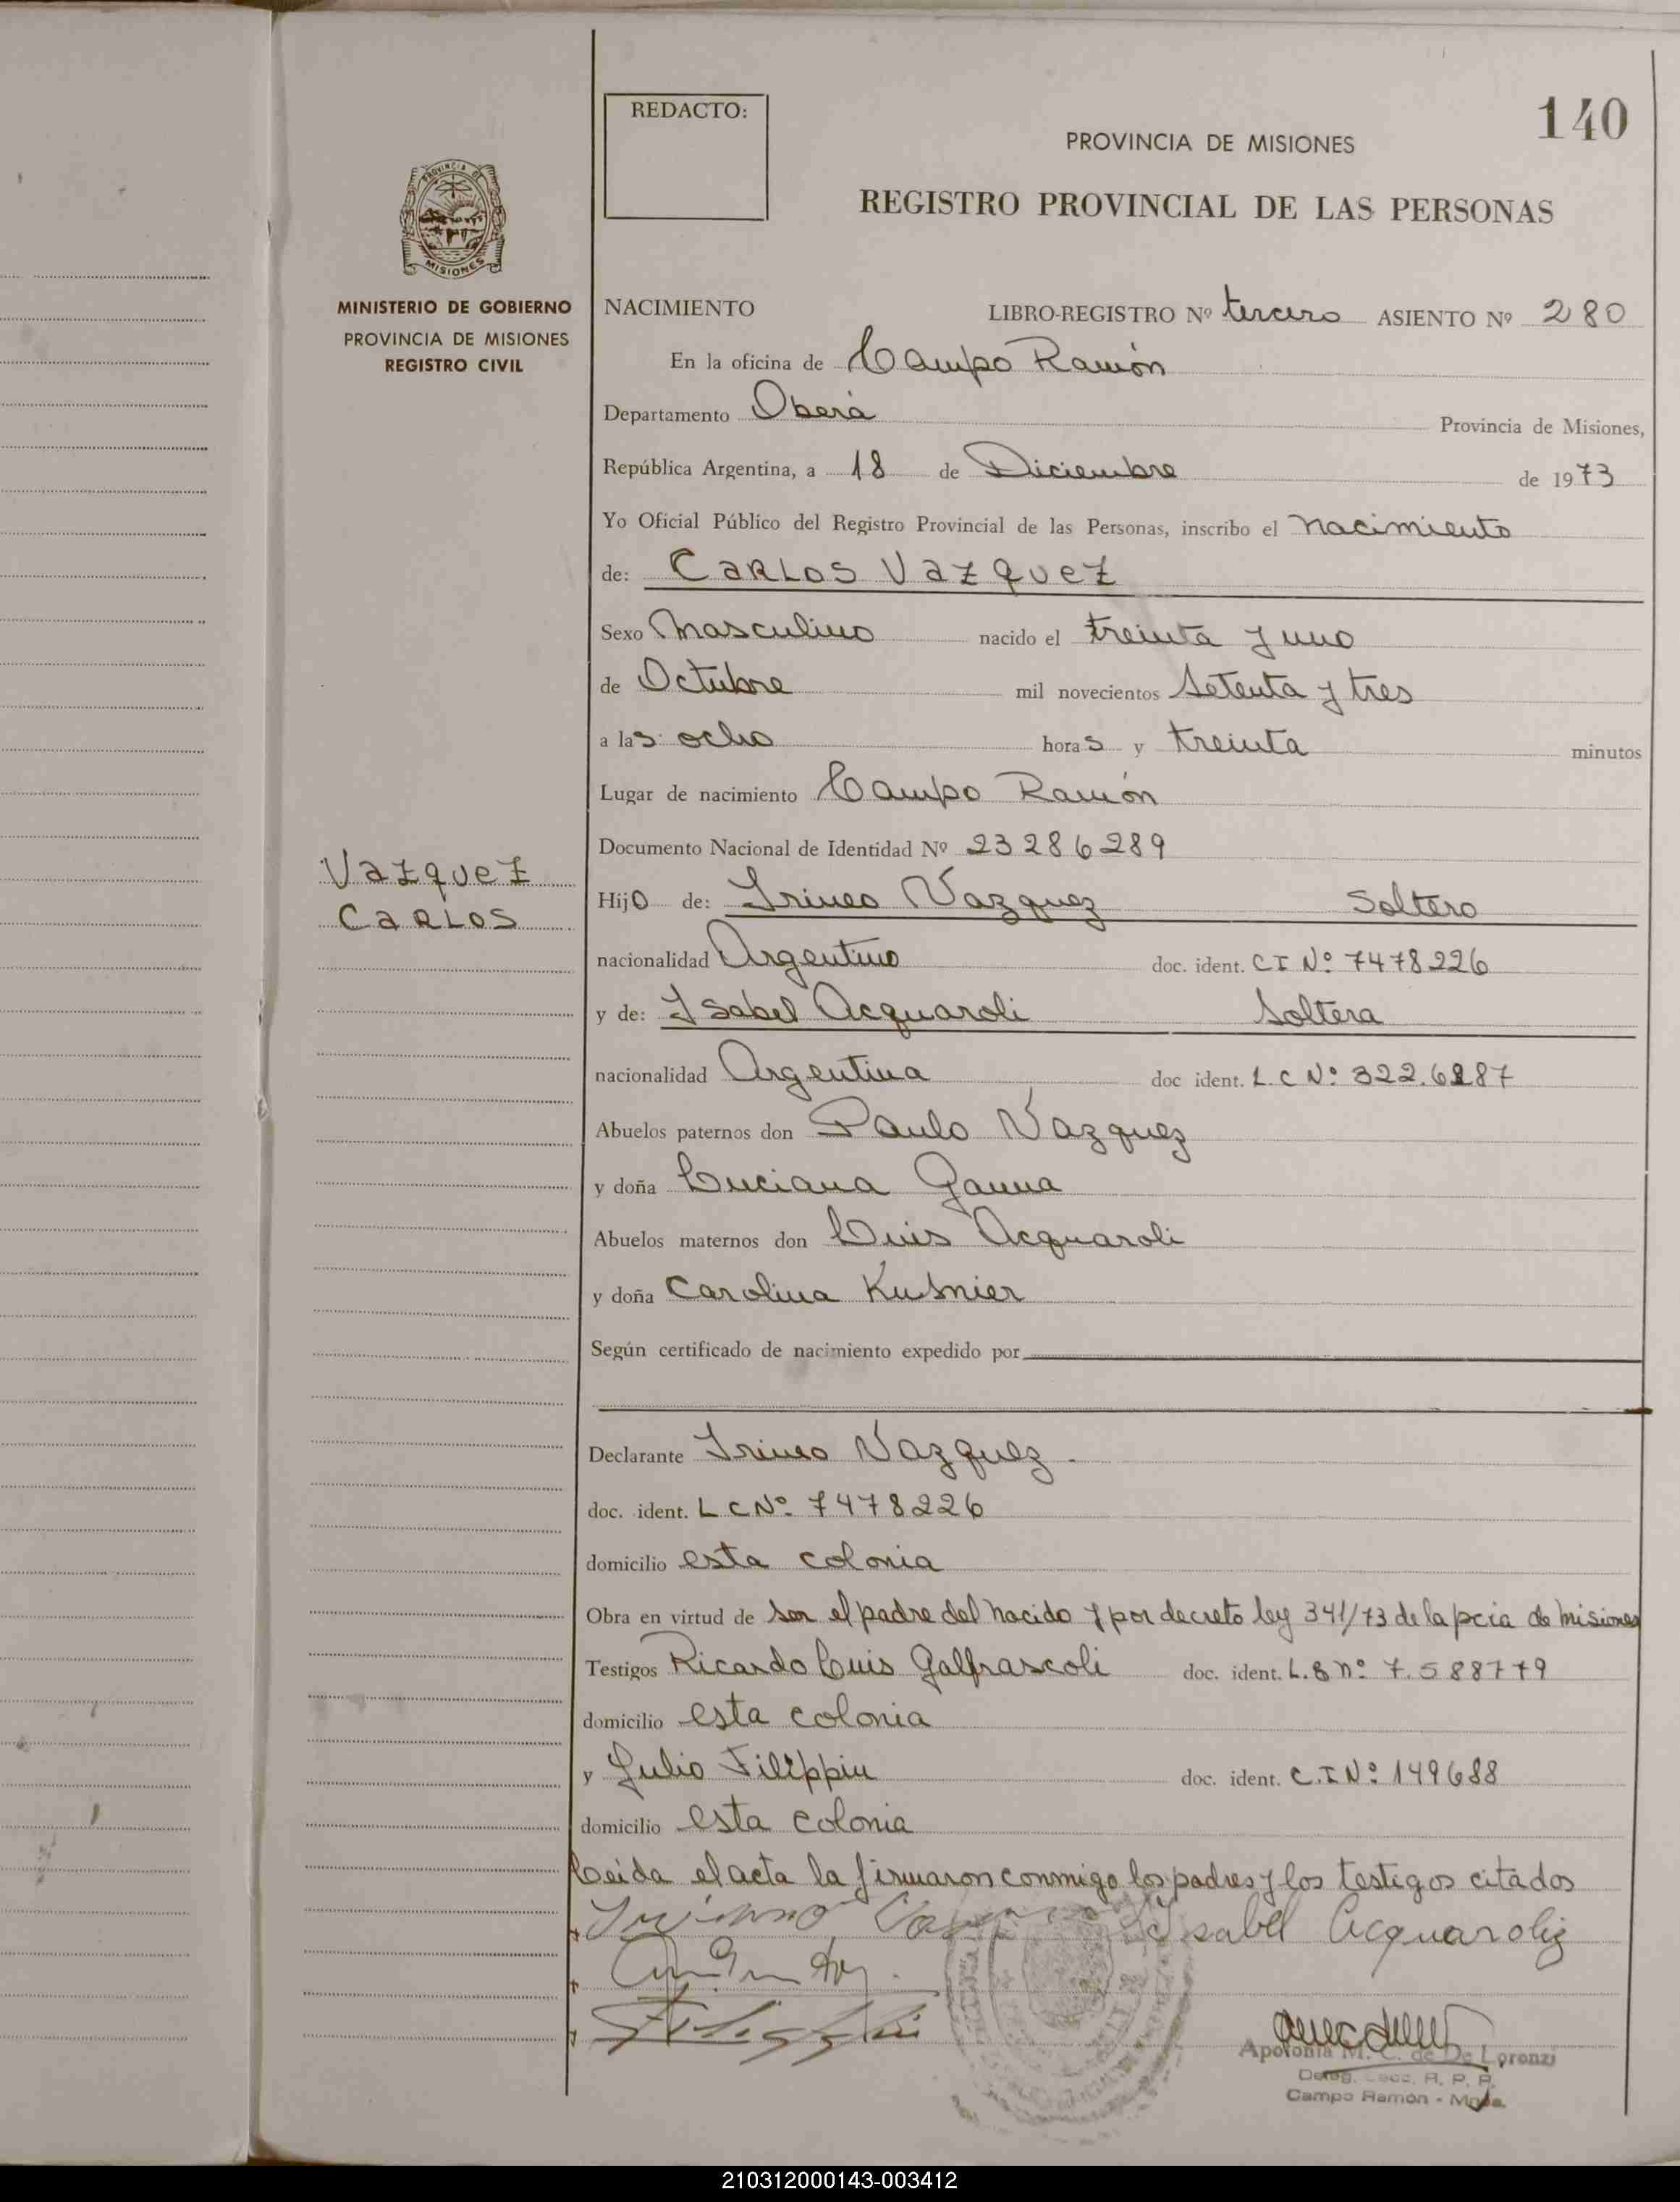 REDACTO:
140
PROVINCIA DE MISIONES
REGISTRO PROVINCIAL DE LAS PERSONAS
PROVINCIA DE
MISIONES
MINISTERIO DE GOBIERNO
PROVINCIA DE MISIONES
REGISTRO CIVIL
NACIMIENTO LIBRO-REGISTRO Nº tercero ASIENTO Nº 280
En la oficina de Campo Ramón
Departamento Oberá Provincia de Misiones,
República Argentina, a 18 de Diciembre de 1973
Yo Oficial Público del Registro Provincial de las Personas, inscribo el Nacimiento
de: CARLOS VAZQUEZ
Sexo Masculino nacido el treinta y uno
de Octubre mil novecientos Setenta y tres
a las ocho horas y treinta minutos
Lugar de nacimiento Campo Ramón
Documento Nacional de Identidad Nº 23286289
VAZQUEZ
CARLOS
Hijo de: Irineo Vazquez Soltero
nacionalidad Argentino doc. ident. CI Nº 7478226
y de: Isabel Acquaroli Soltera
nacionalidad Argentina doc ident. L.C Nº 322.6287
Abuelos paternos don Paulo Vazquez
y doña Luciana Gauna
Abuelos maternos don Luis Acquaroli
y doña Carolina Kusnier
Según certificado de nacimiento expedido por
Declarante Irineo Vazquez.
doc. ident. L C Nº 7478226
domicilio esta colonia
Obra en virtud de ser el padre del nacido y por decreto ley 341/73 de la pcia de Misiones
Testigos Ricardo Luis Galfrascoli doc. ident. L.E nº 7.588779
domicilio esta colonia
y Julio Filippin doc. ident. C.I Nº 149688
domicilio esta colonia
Leída el acta la firmaron conmigo los padres y los testigos citados
Isabel Acquaroli
Apolonia M. C. de De Lorenzi
Deleg. R. P. P.
Campo Ramón - Mnes.
210312000143-003412